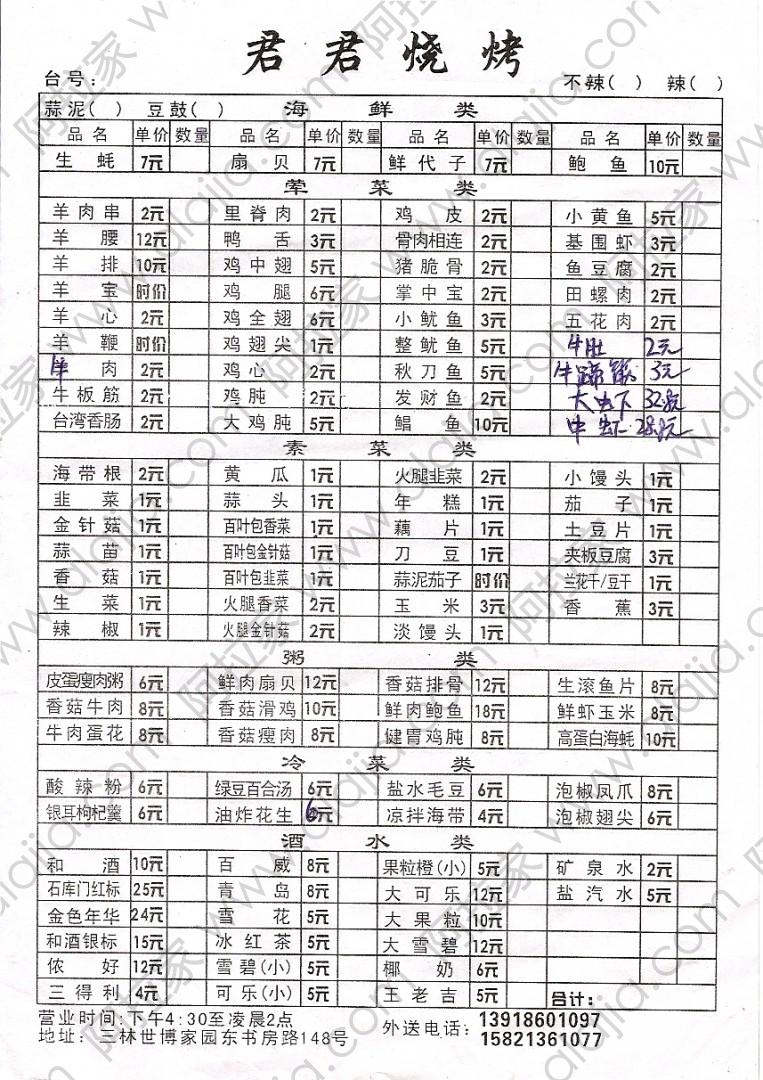 君君烧烤
台号： 不辣( ) 辣( )
蒜泥( ) 豆鼓( ) 海鲜类
品名 单价 数量 品名 单价 数量 品名 单价 数量 品名 单价 数量
生蚝 7元 扇贝 7元 鲜代子 7元 鲍鱼 10元
荤菜类
羊肉串 2元 里脊肉 2元 鸡皮 2元 小黄鱼 5元
羊腰 12元 鸭舌 3元 骨肉相连 2元 基围虾 3元
羊排 10元 鸡中翅 5元 猪脆骨 2元 鱼豆腐 2元
羊宝 时价 鸡腿 6元 掌中宝 2元 田螺肉 2元
羊心 2元 鸡全翅 6元 小鱿鱼 3元 五花肉 2元
羊鞭 时价 鸡翅尖 1元 整鱿鱼 5元 牛肚 2元
牛肉 2元 鸡心 2元 秋刀鱼 5元 牛蹄筋 3元
牛板筋 2元 鸡肫 2元 发财鱼 2元 大虫下 32元
台湾香肠 2元 大鸡肫 5元 鲳鱼 10元 中虫下 28元
素菜类
海带根 2元 黄瓜 1元 火腿韭菜 2元 小馒头 1元
韭菜 1元 蒜头 1元 年糕 1元 茄子 1元
金针菇 1元 百叶包香菜 1元 藕片 1元 土豆片 1元
蒜苗 1元 百叶包金针菇 1元 刀豆 1元 夹板豆腐 3元
香菇 1元 百叶包韭菜 1元 蒜泥茄子 时价 兰花干/豆干 1元
生菜 1元 火腿香菜 2元 玉米 3元 香蕉 3元
辣椒 1元 火腿金针菇 2元 淡馒头 1元
粥类
皮蛋瘦肉粥 6元 鲜肉扇贝 12元 香菇排骨 12元 生滚鱼片 8元
香菇牛肉 8元 香菇滑鸡 10元 鲜肉鲍鱼 18元 鲜虾玉米 8元
牛肉蛋花 8元 香菇瘦肉 8元 健胃鸡肫 8元 高蛋白海蚝 10元
冷菜类
酸辣粉 6元 绿豆百合汤 6元 盐水毛豆 6元 泡椒凤爪 8元
银耳枸杞羹 6元 油炸花生 6元 凉拌海带 4元 泡椒翅尖 6元
酒水类
和酒 10元 百威 8元 果粒橙(小) 5元 矿泉水 2元
石库门红标 25元 青岛 8元 大可乐 12元 盐汽水 5元
金色年华 24元 雪花 5元 大果粒 10元
和酒银标 15元 冰红茶 5元 大雪碧 12元
侬好 12元 雪碧(小) 5元 椰奶 6元
三得利 4元 可乐(小) 5元 王老吉 5元 合计：
营业时间：下午4:30至凌晨2点 外送电话：13918601097
地址：三林世博家园东书房路148号 15821361077
阿拉家 www.alajia.com